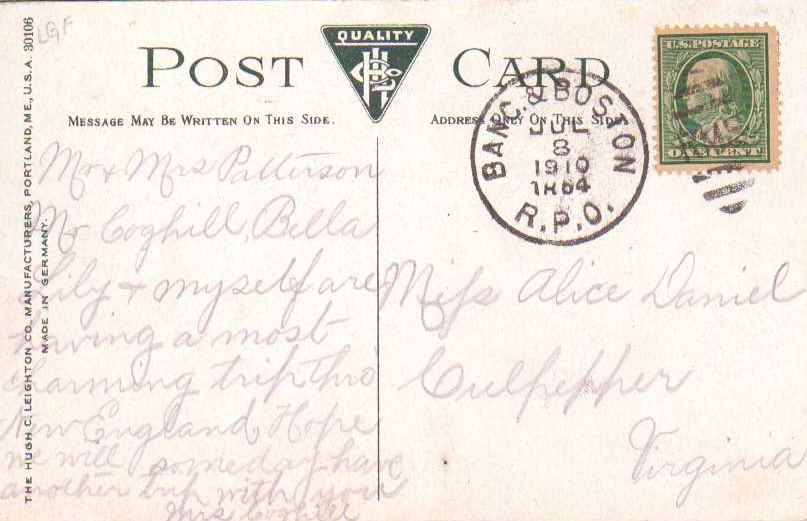 LGF
THE HUGH C. LEIGHTON CO., MANUFACTURERS, PORTLAND, ME., U.S.A. 30106
MADE IN GERMANY.
QUALITY
POST CARD
MESSAGE MAY BE WRITTEN ON THIS SIDE.
ADDRESS ONLY ON THIS SIDE
U.S. POSTAGE
ONE CENT
BANG. & BOSTON
JUL
8
1910
TR 64
R.P.O.
Mr + Mrs Patterson
Mr Coghill, Bella
Lily + myself are
having a most
charming trip thro
New England Hope
we will someday have
another trip with you
Mrs Coghill
Miss Alice Daniel
Culpepper
Virginia